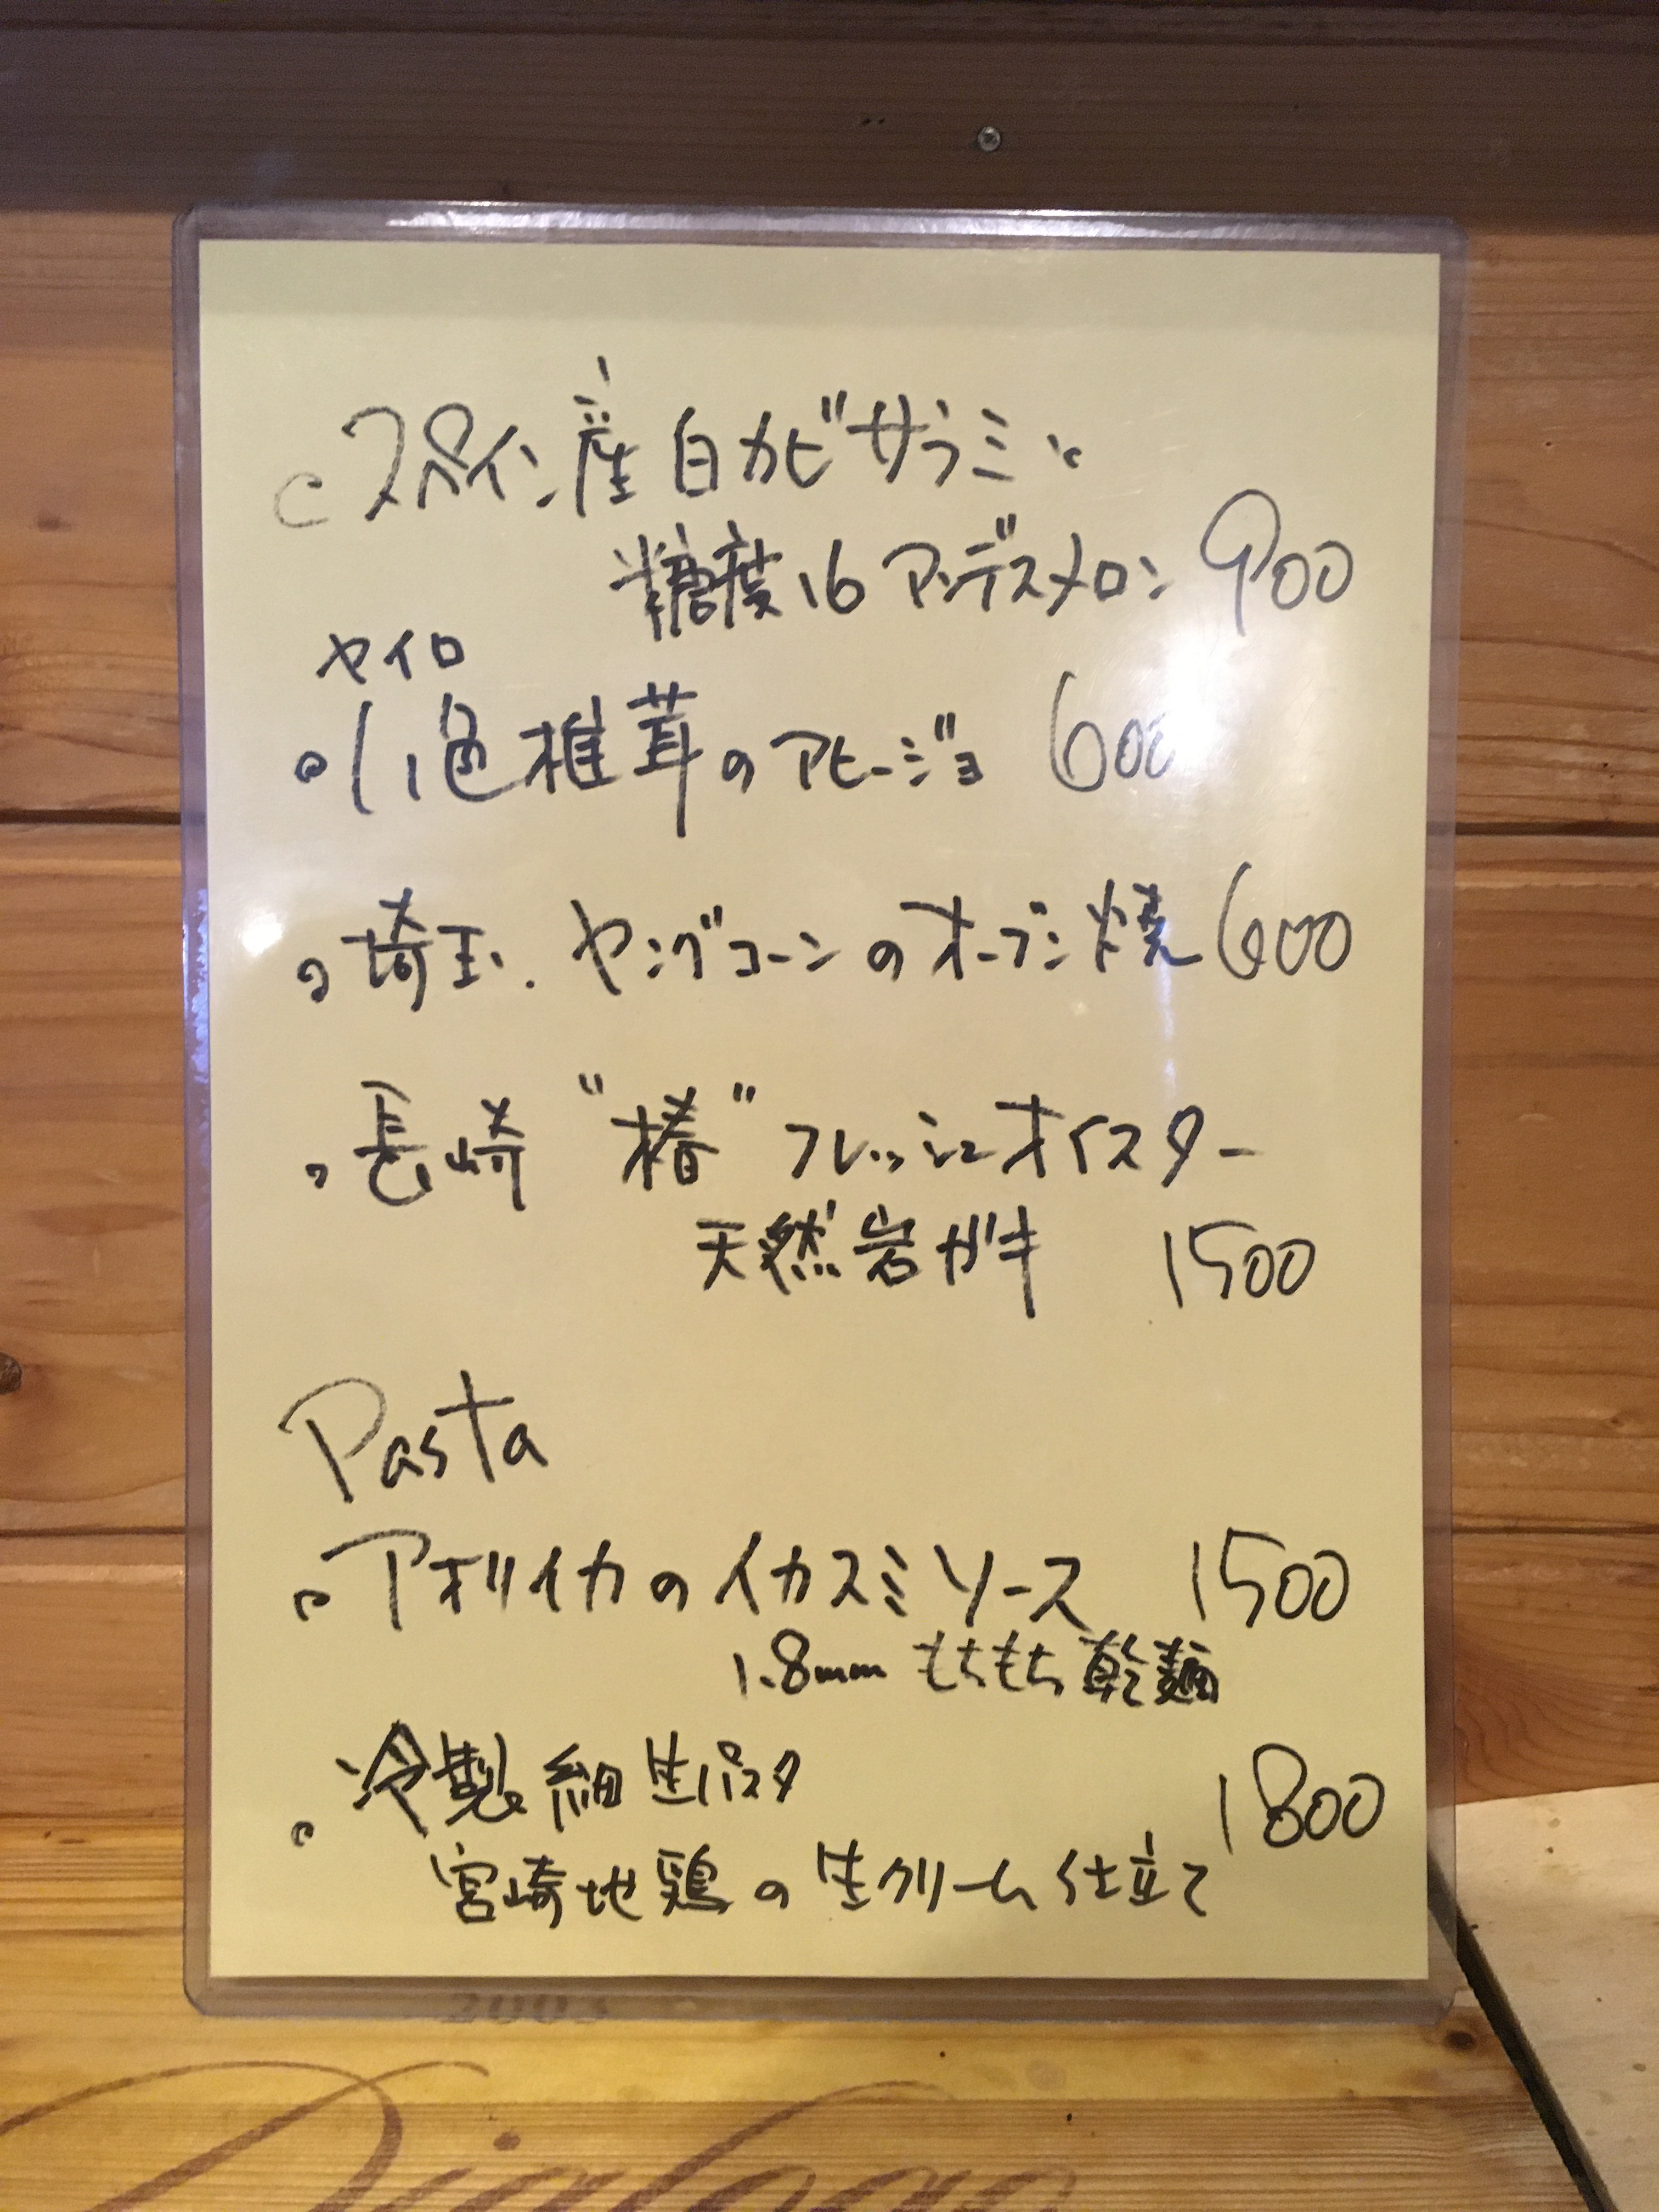 スペイン産白カビサラミと
糖度16アンデスメロン 900
ヤイロ
八色椎茸のアヒージョ 600
埼玉.ヤングコーンのオーブン焼 600
長崎"椿"フレッシュオイスター
天然岩ガキ 1500
Pasta
アオリイカのイカスミソース 1500
1.8mmもちもち乾麺
冷製細生パスタ 1800
宮崎地鶏の生クリーム仕立て
2003
Dialogo